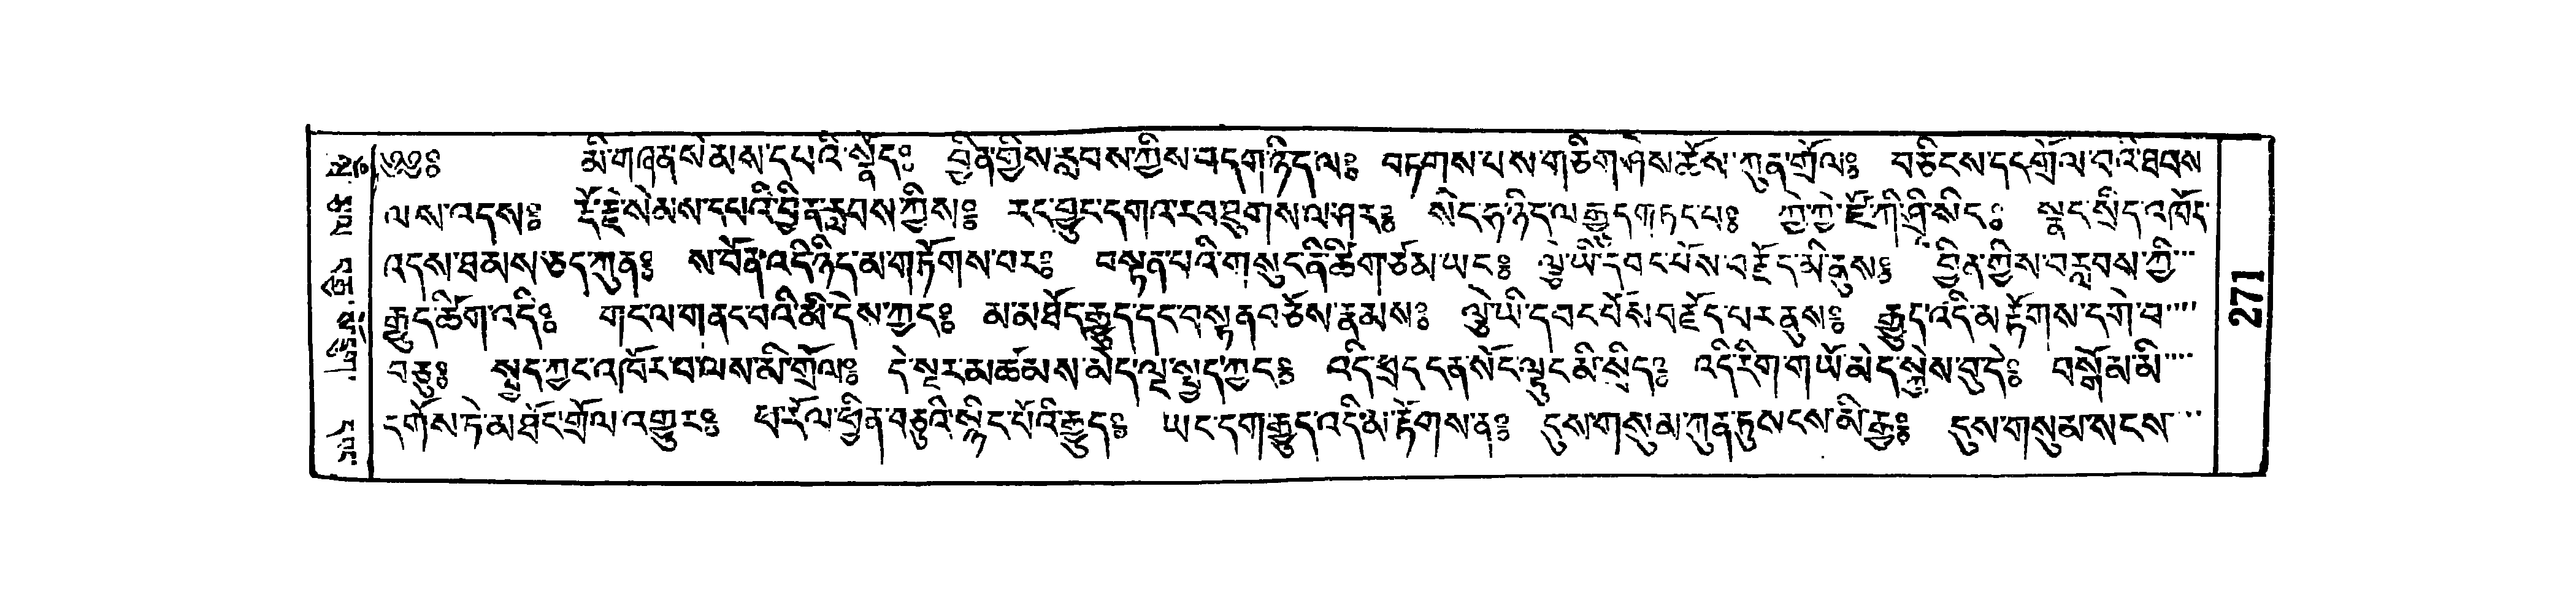 ༄༅༔ མི་གཞན་སེམས་དཔའི་སྣོད༔ བྱིན་གྱིས་རླབས་ཀྱིས་བདག་ཉིད་ལ༔ བཏགས་པས་གཅིག་ཤེས་ཆོས་ཀུན་གྲོལ༔ བཅིངས་དང་གྲོལ་བའི་ཐབས
ལས་འདས༔ རྡོ་རྗེ་སེམས་དཔའི་བྱིན་རླབས་ཀྱིས༔ རང་བྱུང་དགའ་རབ་ཐུགས་ལ་ཤར༔ སེང་ཧ་ཉིད་ལ་རྒྱུད་གཏང་པ༔ ཀྱེ་ཀྱེ་ཇོ་ཀི་ཤྲི་སིང༔ སྣང་སྲིད་འཁོར་
འདས་ཐམས་ཅད་ཀུན༔ ས་བོན་འདི་ཉིད་མ་གཏོགས་པར༔ བསྟན་པའི་གསུང་ནི་ཚིག་ཙམ་ཡང༔ ལྕེ་ཡི་དབང་པོས་བརྗོད་མི་ནུས༔ བྱིན་གྱིས་བརླབས་ཀྱི
རྒྱུད་ཚིག་འདི༔ གང་ལ་གནང་བའི་མི་དེས་ཀྱང༔ མ་མཐོང་རྒྱུད་དང་བསྟན་བཅོས་རྣམས༔ ལྕེ་ཡི་དབང་པོས་བརྗོད་པར་ནུས༔ རྒྱུད་འདི་མ་རྟོགས་དགེ་བ
བཅུ༔ སྤྱད་ཀྱང་འཁོར་བ་ལས་མི་གྲོལ༔ དེ་སྔར་མཚམས་མེད་ལྔ་སྤྱད་ཀྱང༔ འདི་ཕྲད་ངན་སོང་ལྟུང་མི་སྲིད༔ འདི་རིག་གཡོ་མེད་སྐྱེས་བུ་དེ༔ བསྒོམ་མི
དགོས་ཏེ་མཐོང་གྲོལ་འགྱུར༔ ཕ་རོལ་ཕྱིན་བཅུའི་སྙིང་པོའི་རྒྱུད༔ ཡང་དག་རྒྱུད་འདི་མ་རྟོགས་ན༔ དུས་གསུམ་ཀུན་ཏུ་སངས་མི་རྒྱ༔ དུས་གསུམ་སངས